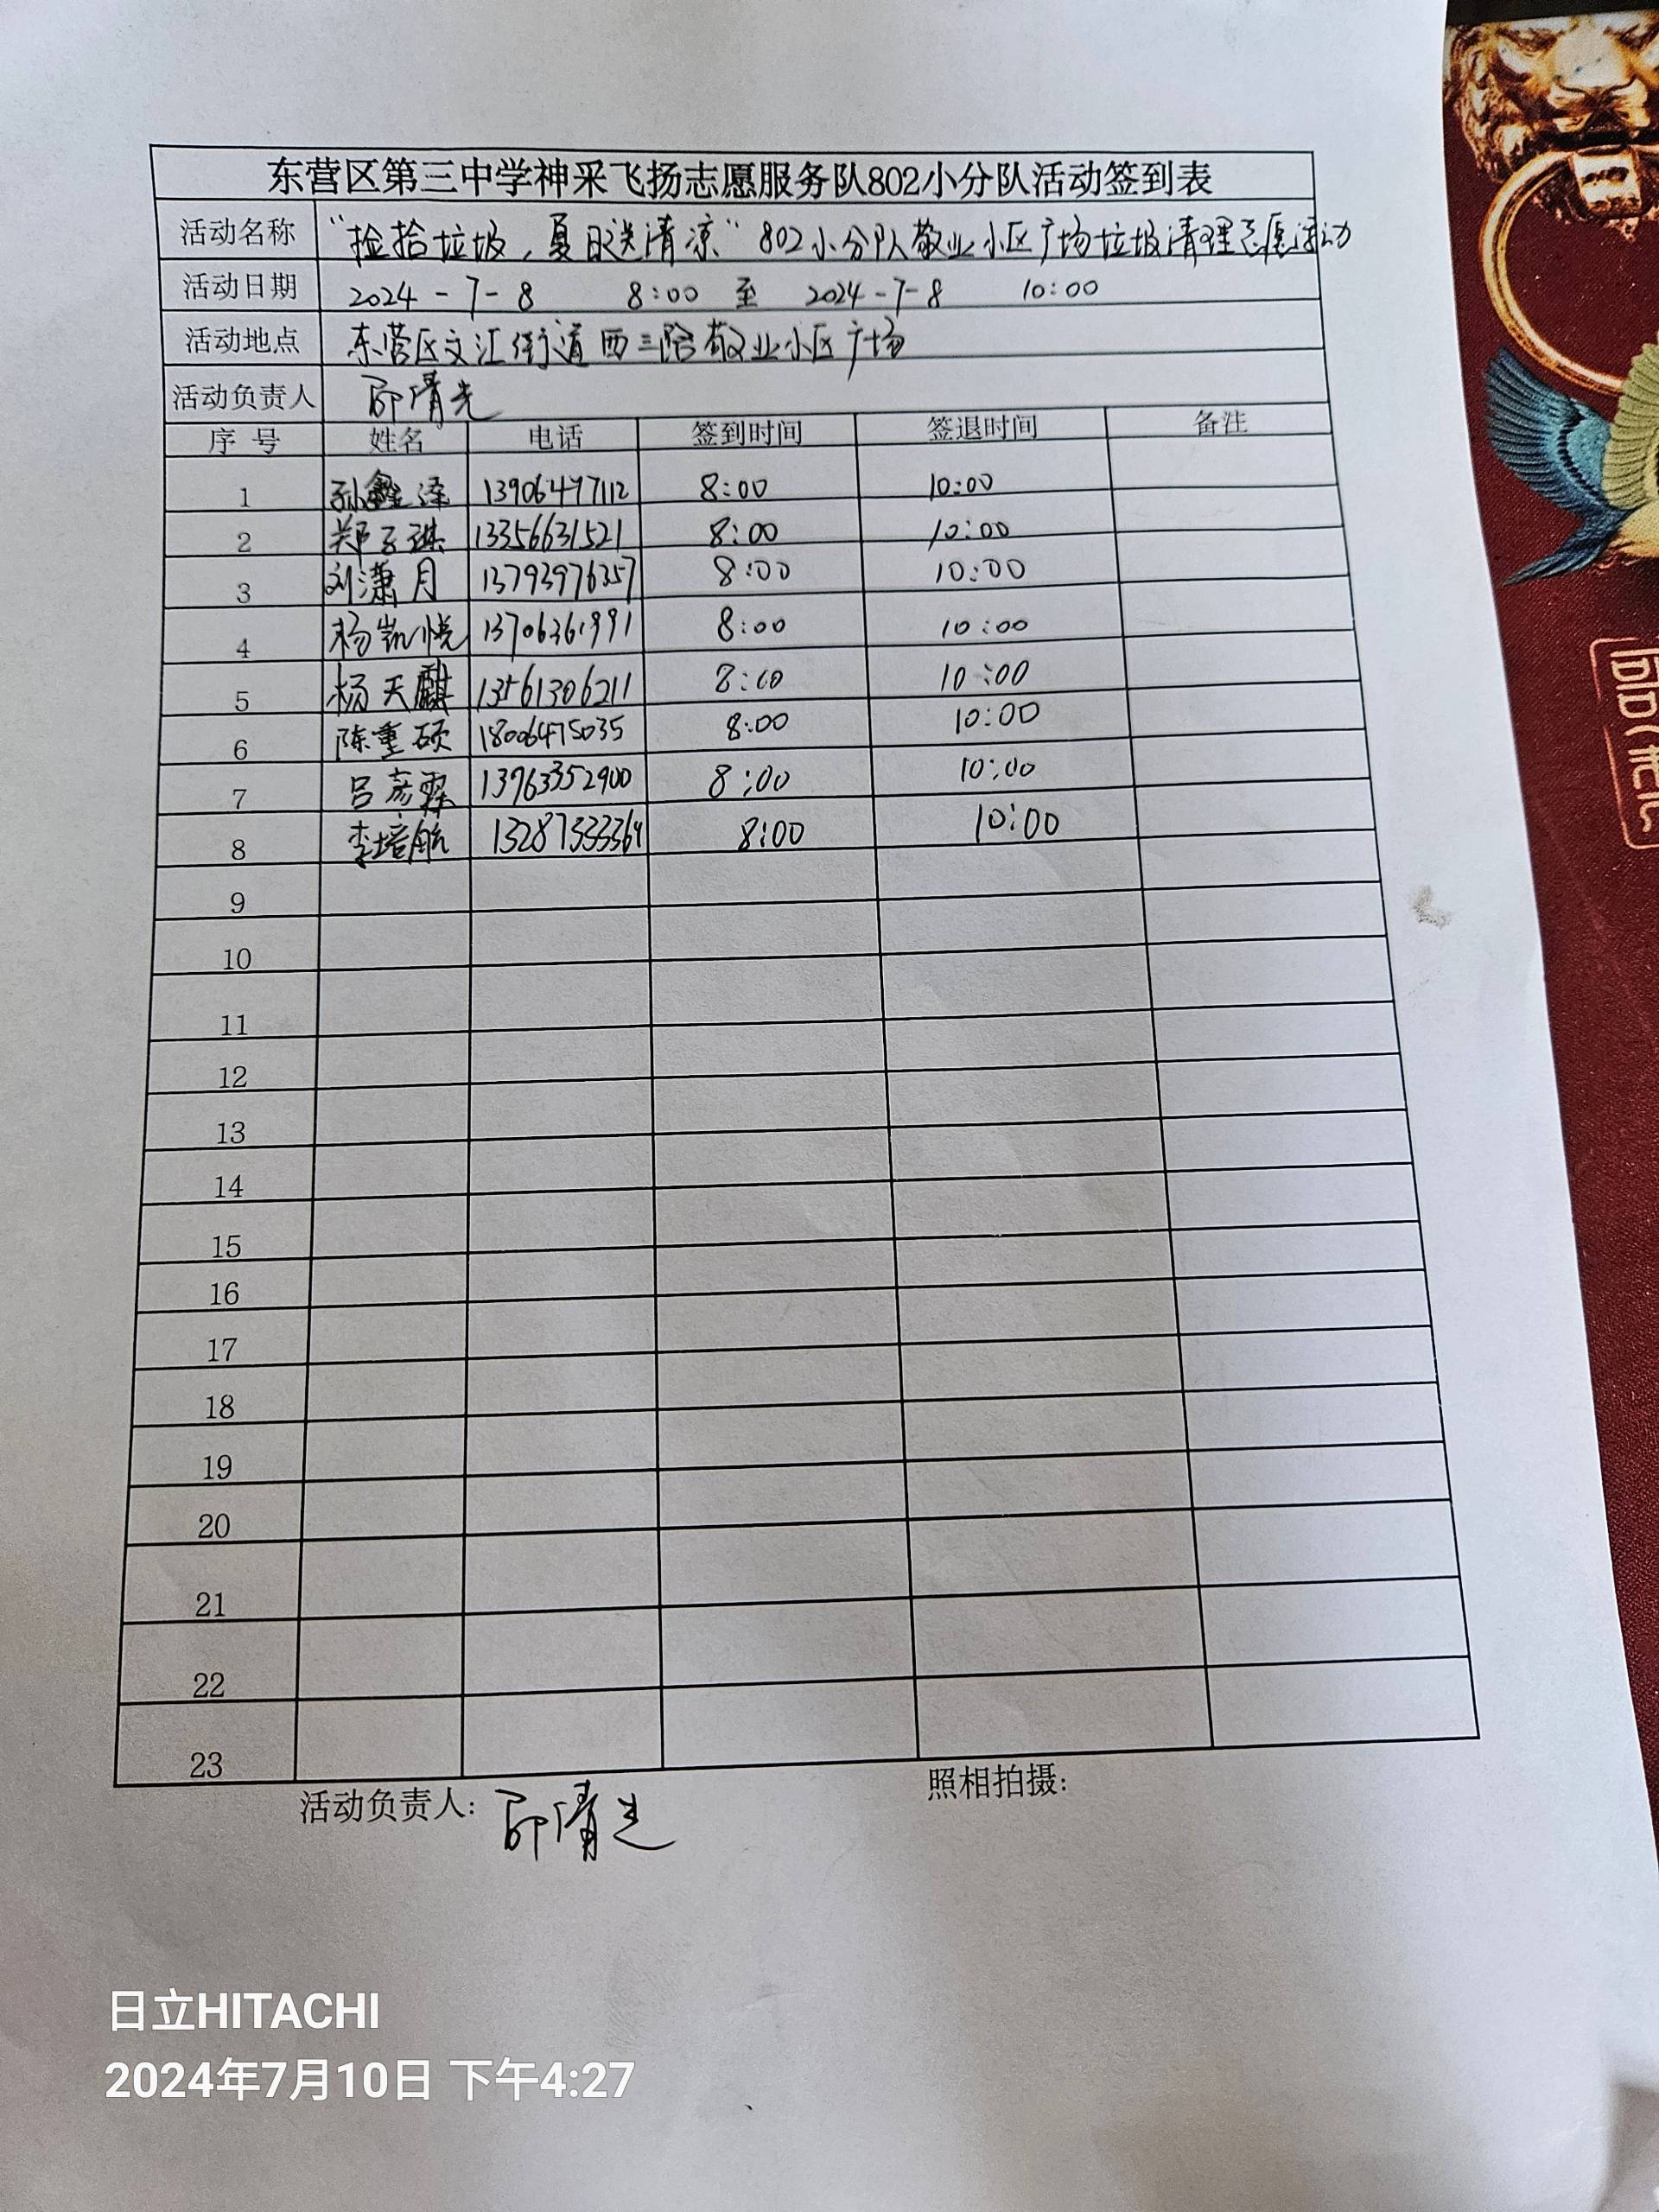 东营区第三中学神采飞扬志愿服务队802小分队活动签到表
活动名称 “捡拾垃圾，夏日送清凉”802小分队敬业小区广场垃圾清理志愿活动
活动日期 2024-7-8 8:00 至 2024-7-8 10:00
活动地点 东营区文汇街道西三路敬业小区广场
活动负责人
序 号 姓名 电话 签到时间 签退时间 备注
1 孙鑫泽 13906497112 8:00 10:00
2 郑子琪 13356631521 8:00 10:00
3 刘潇月 13793976357 8:00 10:00
4 杨凯悦 13706361991 8:00 10:00
5 杨天麒 13561306211 8:00 10:00
6 陈重硕 18006475035 8:00 10:00
7 吕彦霖 13963352900 8:00 10:00
8 李培航 8:00 10:00
9
10
11
12
13
14
15
16
17
18
19
20
21
22
23
活动负责人: 照相拍摄:
日立HITACHI
2024年7月10日 下午4:27